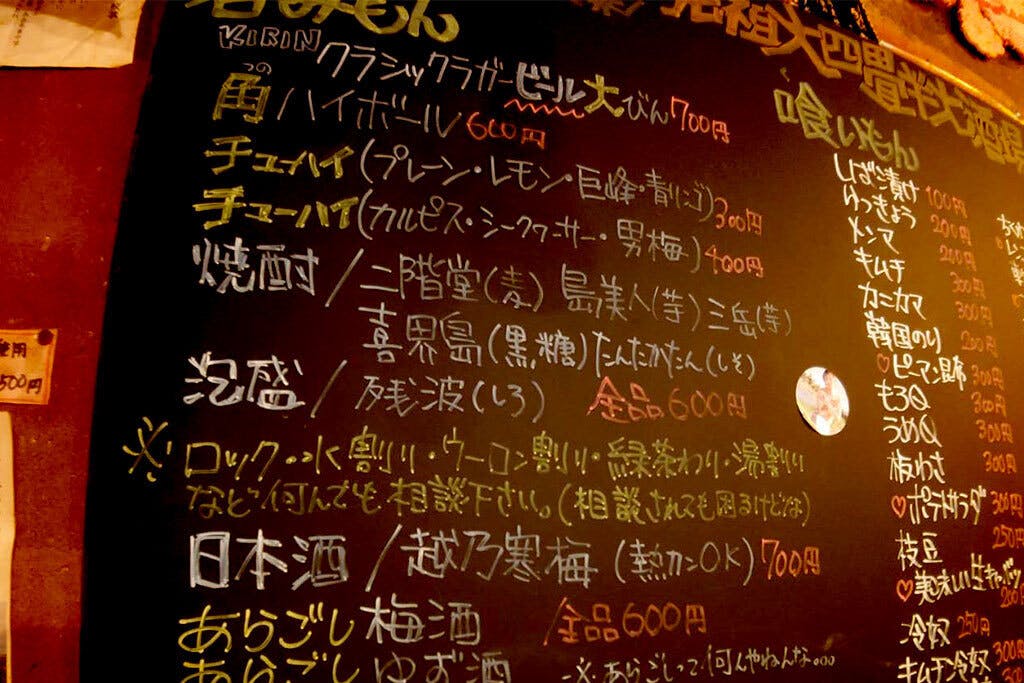 呑みもん
KIRIN クラシックラガービール大びん 700円
角ハイボール 600円
チューハイ(プレーン・レモン・巨峰・青りんご) 300円
チューハイ(カルピス・シークワーサー・男梅) 400円
焼酎/二階堂(麦) 島美人(芋) 三岳(芋)
喜界島(黒糖) たんたかたん(しそ)
泡盛/残波(しろ) 全品600円
※ロック・水割り・ウーロン割り・緑茶わり・湯割り
など何んでも相談下さい。(相談されても困るけどな)
日本酒/越乃寒梅(熱カンOK) 700円
あらごし梅酒 /全品600円
あらごしゆず酒 ※あらごしって何んやねんな。。。
元祖大四畳半大酒場
喰いもん
しば漬け 100円
ゆっきょう 200円
メンマ 200円
キムチ 300円
カニカマ 300円
韓国のり 200円
♡ピーマン昆布 300円
もろQ 300円
うめQ 300円
板わさ 300円
♡ポテトサラダ 300円
枝豆 250円
♡美味しい生キャベツ 200
冷奴 250円
キムチ冷奴 300円
500円